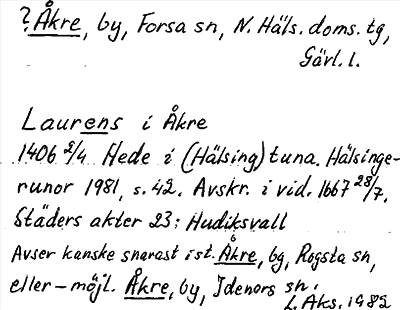 ? Åkre, by, Forsa sn, N. Häls. doms. tg,
Gävl. l.
Laurens i Åkre
1406 2/4 Hede i (Hälsing)tuna. Hälsinge-
runor 1981, s. 42. Avskr. i vid. 1667 28/7.
Städers akter 23: Hudiksvall
Avser kanske snarast i st. Åkre, by, Rogsta sn,
eller - möjl. Åkre, by, Idenors sn.
L. Aks. 1982